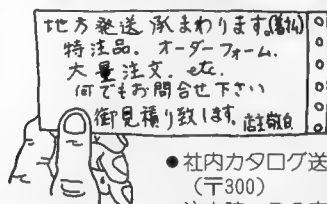 地方発送承まわります。(着払)
特注品。オーダーフォーム.
大量注文. etc.
何でもお問合せ下さい
御見積り致します。店主敬白
●社内カタログ送
(〒300)